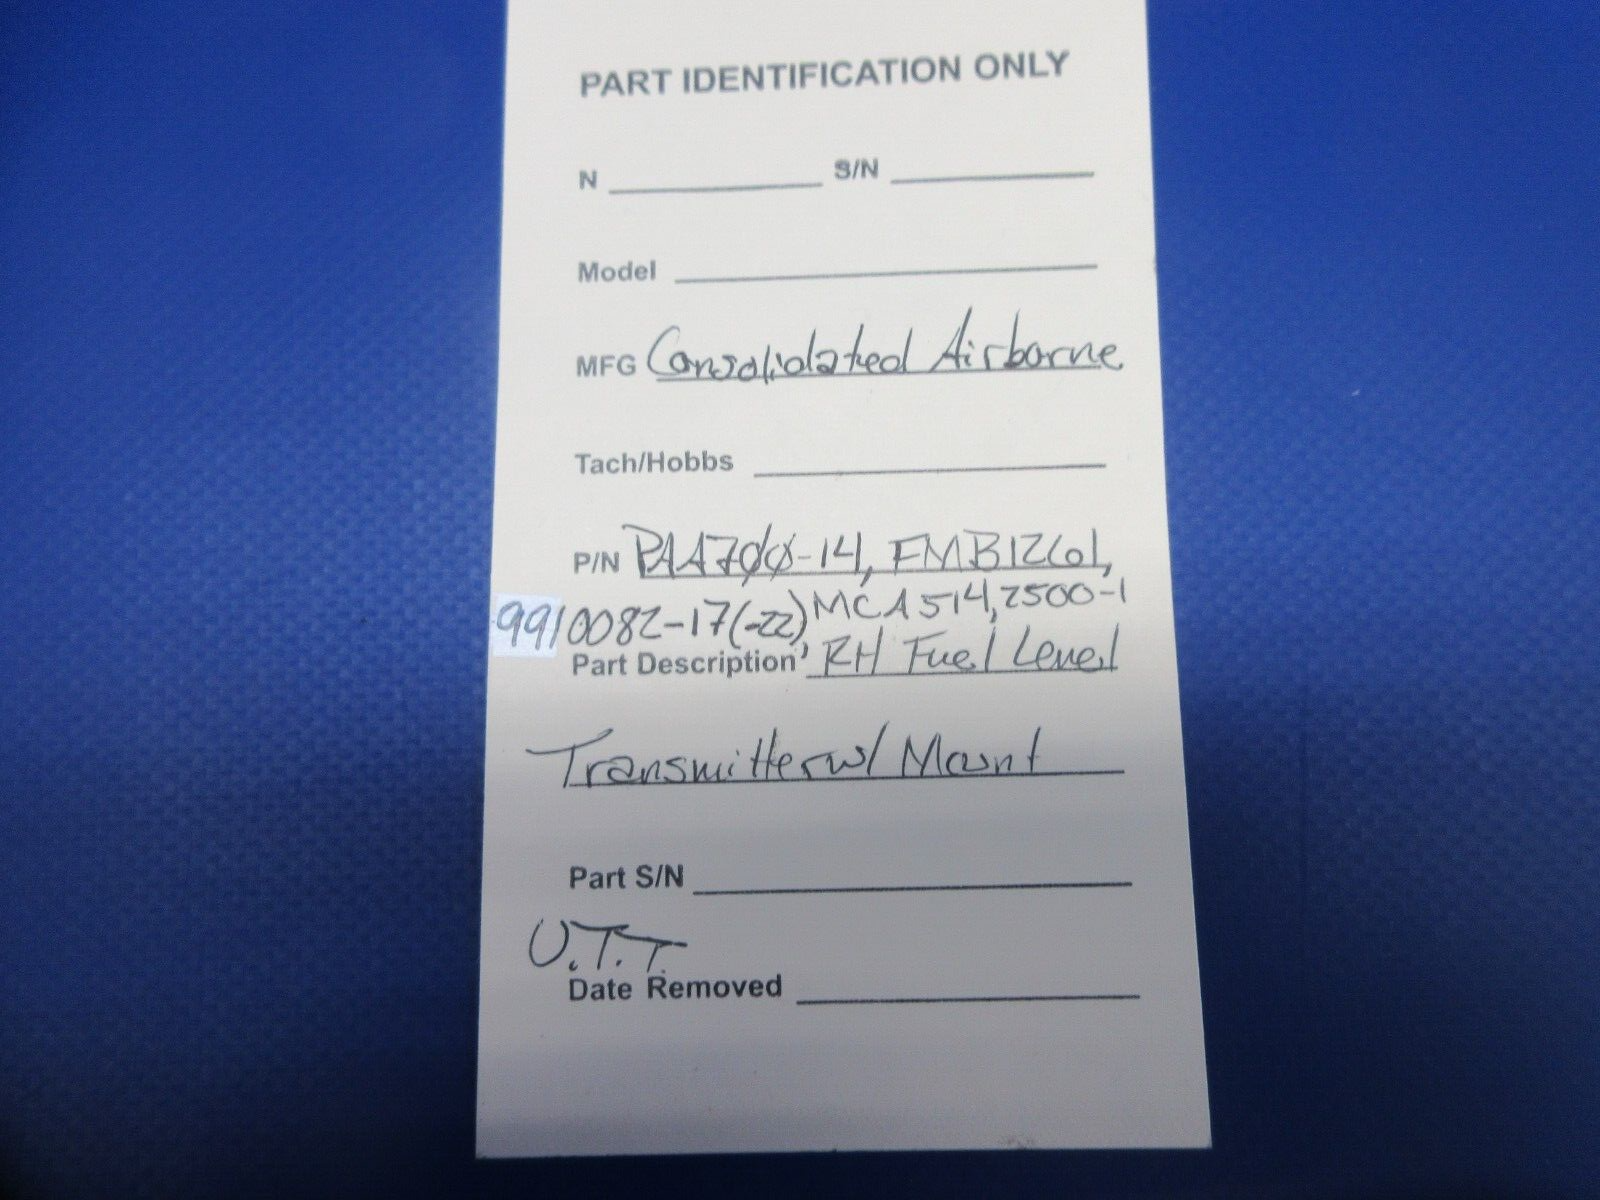 PART IDENTIFICATION ONLY
N S/N
Model
MFG Consolidated Airborne
Tach/Hobbs
P/N PAA700-14, FMB1261,
9910082-17(-22), MCA514, 2500-1
Part Description RH Fuel Level
Transmitter w/ Mount
Part S/N
U.T.T.
Date Removed